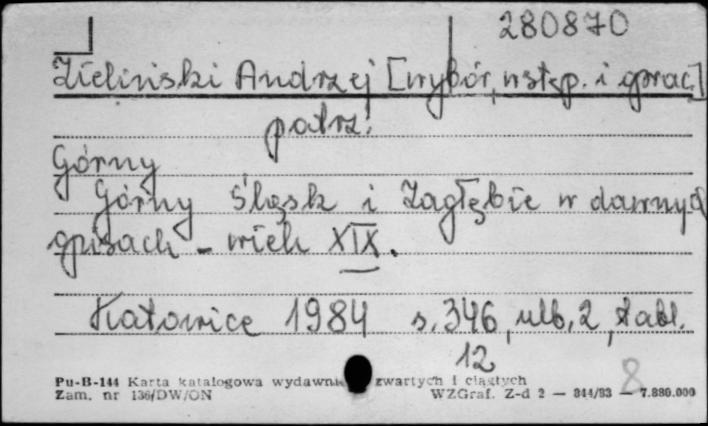 280870
Zieliński Andrzej [wybór, wstęp. i oprac.]
patrz:
Górny
Górny Śląsk i Zagłębie w dawnych
opisach - wiek XIX.
Katowice 1984 s. 346, nlb. 2, tabl.
12
8
Pu-B-144 Karta katalogowa wydawnictw zwartych i ciągłych
Zam. nr 136/DW/ON WZGraf. Z-d 2 — 844/83 — 7.880.000